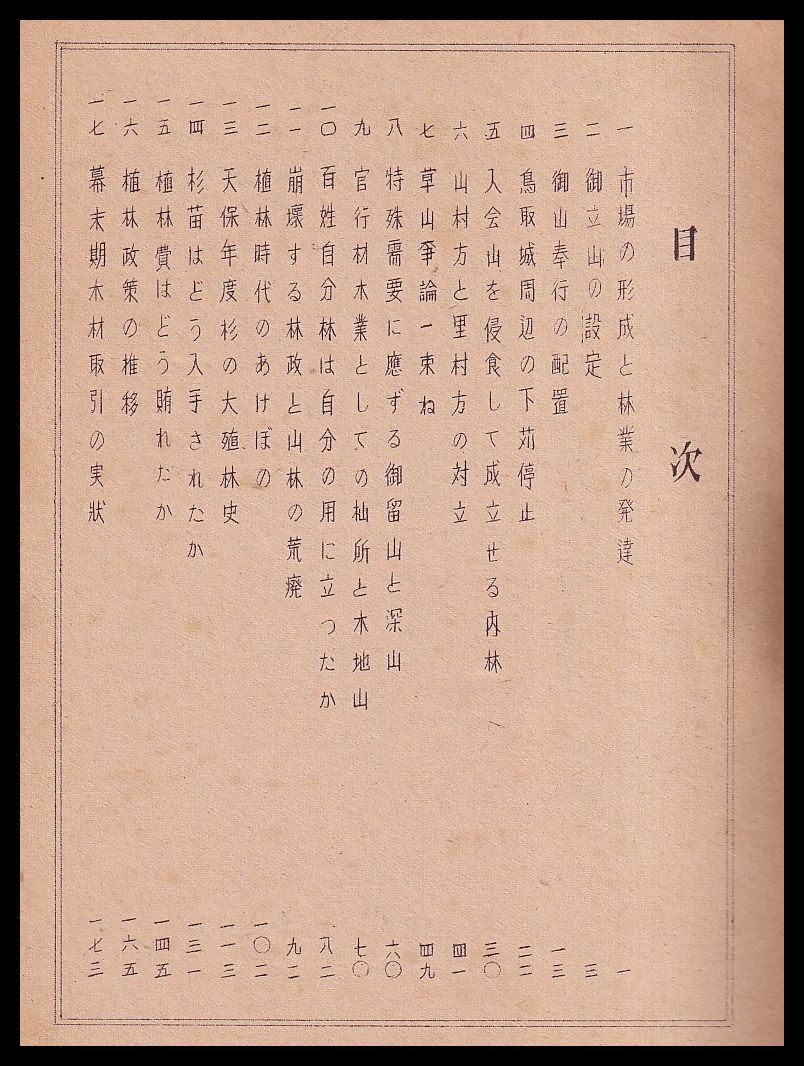 目次
一 市場の形成と林業の発達 一
二 御立山の設定 三
三 御山奉行の配置 一三
四 鳥取城周辺の下苅停止 二二
五 入会山を侵食して成立せる内林 三〇
六 山村方と里村方の対立 四一
七 草山爭論一束ね 四九
八 特殊需要に應ずる御留山と深山 六〇
九 官行材木業としての杣所と木地山 七〇
一〇 百姓自分林は自分の用に立つたか 八二
一一 崩壞する林政と山林の荒廃 九二
一二 植林時代のあけぼの 一〇二
一三 天保年度杉の大殖林史 一一三
一四 杉苗はどう入手されたか 一三一
一五 植林費はどう賄れたか 一四五
一六 植林政策の推移 一六五
一七 幕末期木材取引の実狀 一七三